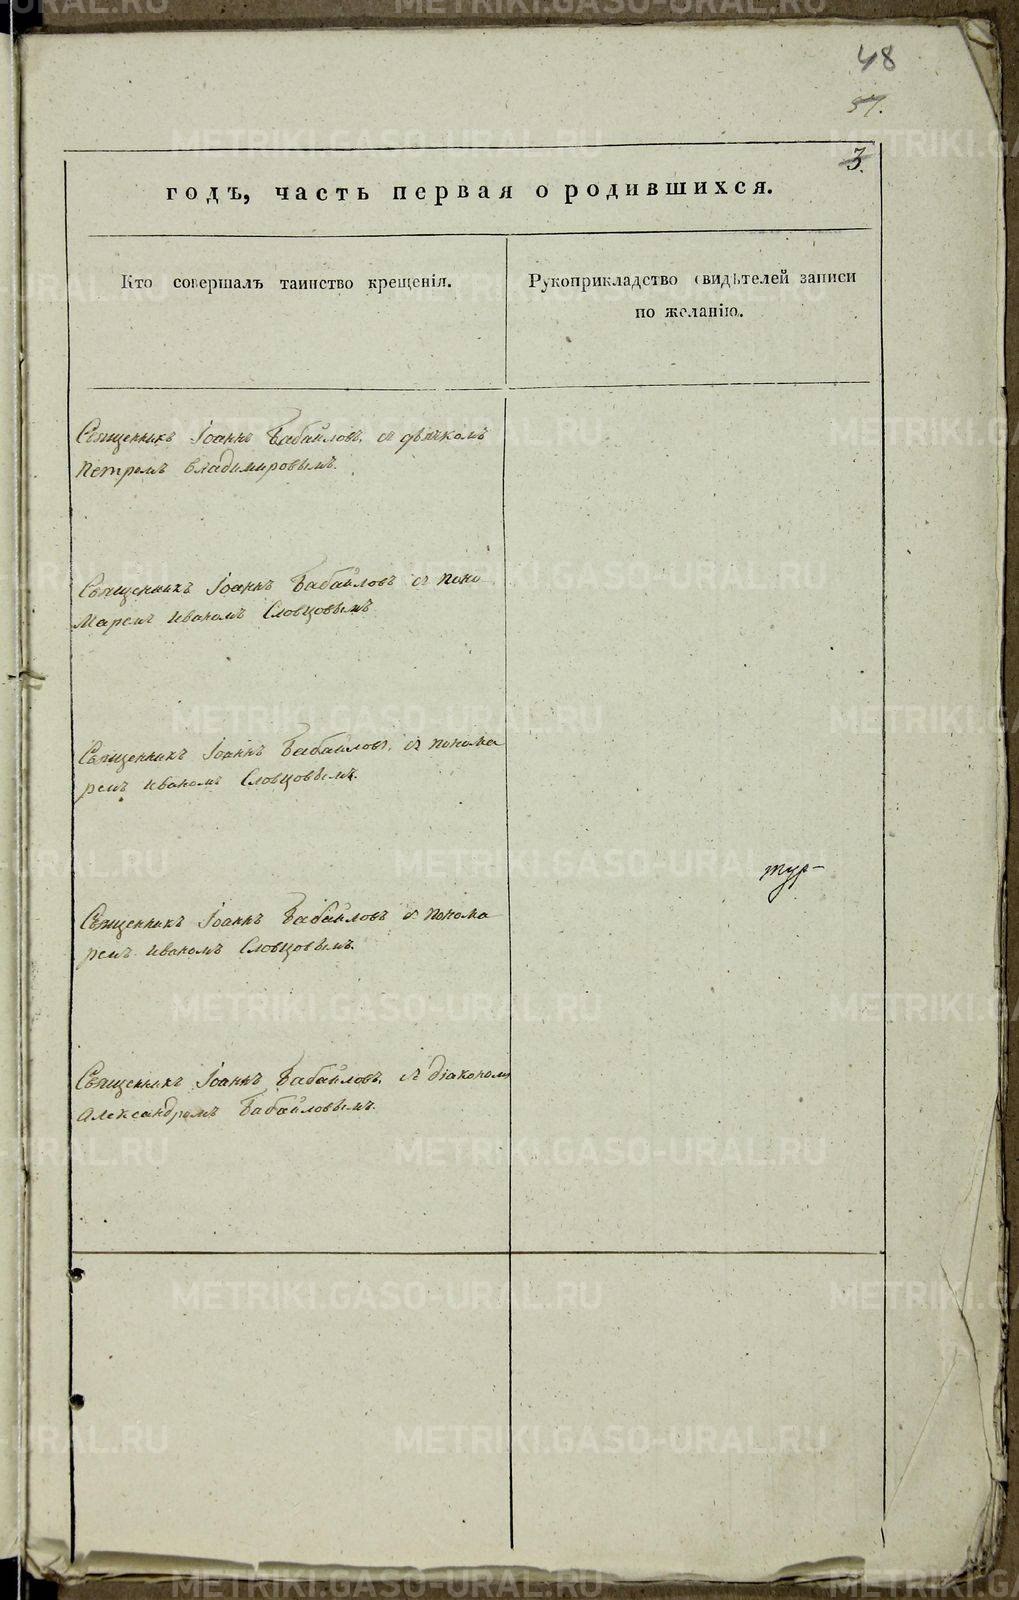 48
57.
3.
годъ, часть первая о родившихся.
Кто совершалъ таинство крещенія.
Рукоприкладство свидѣтелей записи
по желанію.
Священникъ Іоаннъ Бабайловъ, съ дьячкомъ
Петромъ Владимировымъ.
Священникъ Іоаннъ Бабайловъ съ поно
маремъ Иваномъ Словцовымъ
Священникъ Іоаннъ Бабайловъ, съ понома
ремъ Иваномъ Словцовымъ.
тур-
Священникъ Іоаннъ Бабайловъ съ понома
ремъ Иваномъ Словцовымъ.
Священникъ Іоаннъ Бабайловъ, съ діакономъ
Александромъ Бабайловымъ.
METRIKI.GASO-URAL.RU